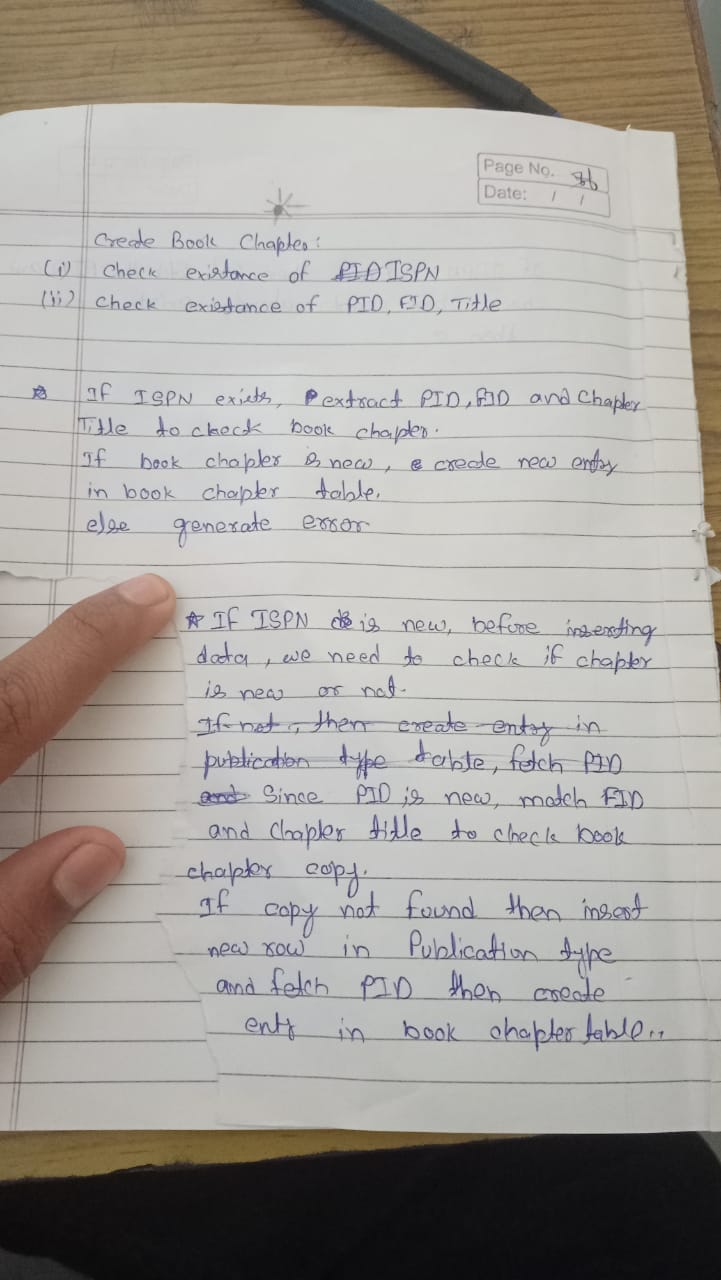 Page No. 36
Date: / /
Create Book Chapter:
(i) Check existance of PID ISPN
(ii) Check existance of PID, FID, Title
If ISPN exists, extract PID, FID and Chapter
Title to check book chapter.
If book chapter is new, create new entry
in book chapter table.
else generate error
If ISPN is new, before inserting
data, we need to check if chapter
is new or not.
If not, then create entry in
publication type table, fetch PID
and Since PID is new, match FID
and Chapter title to check book
chapter copy.
If copy not found then insert
new row in Publication type
and fetch PID then create
enty in book chapter table..